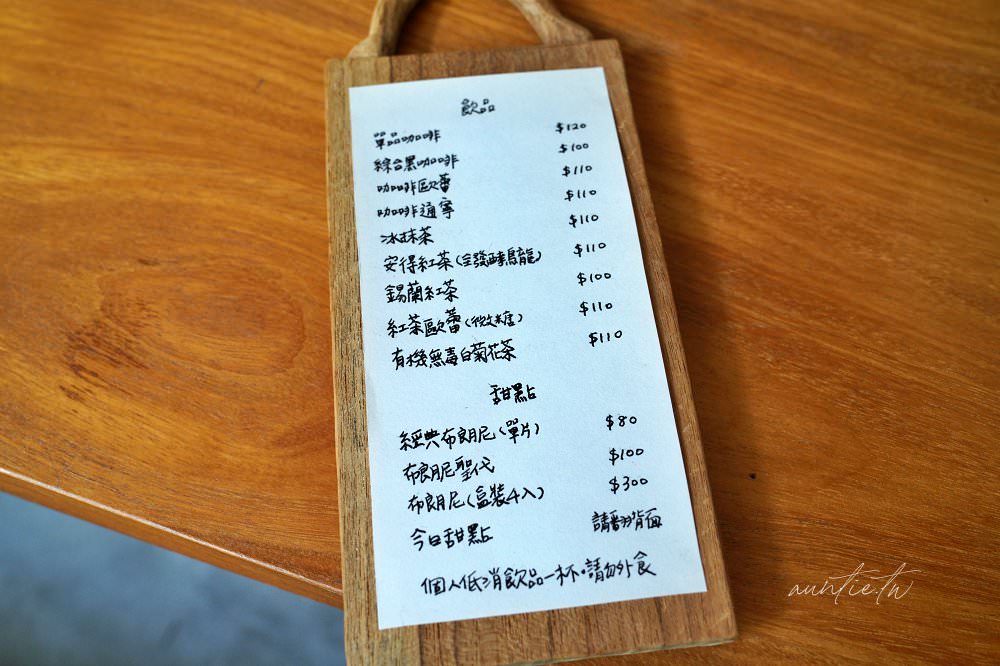 飲品
單品咖啡 $120
綜合黑咖啡 $100
咖啡歐蕾 $110
咖啡通寧 $110
冰抹茶 $110
安得紅茶(全發酵烏龍) $110
錫蘭紅茶 $100
紅茶歐蕾(微糖) $110
有機無毒白菊花茶 $110
甜點
經典布朗尼(單片) $80
布朗尼聖代 $100
布朗尼(盒裝4入) $300
今日甜點 請翻背面
個人低消飲品一杯・請勿外食
auntie.tw